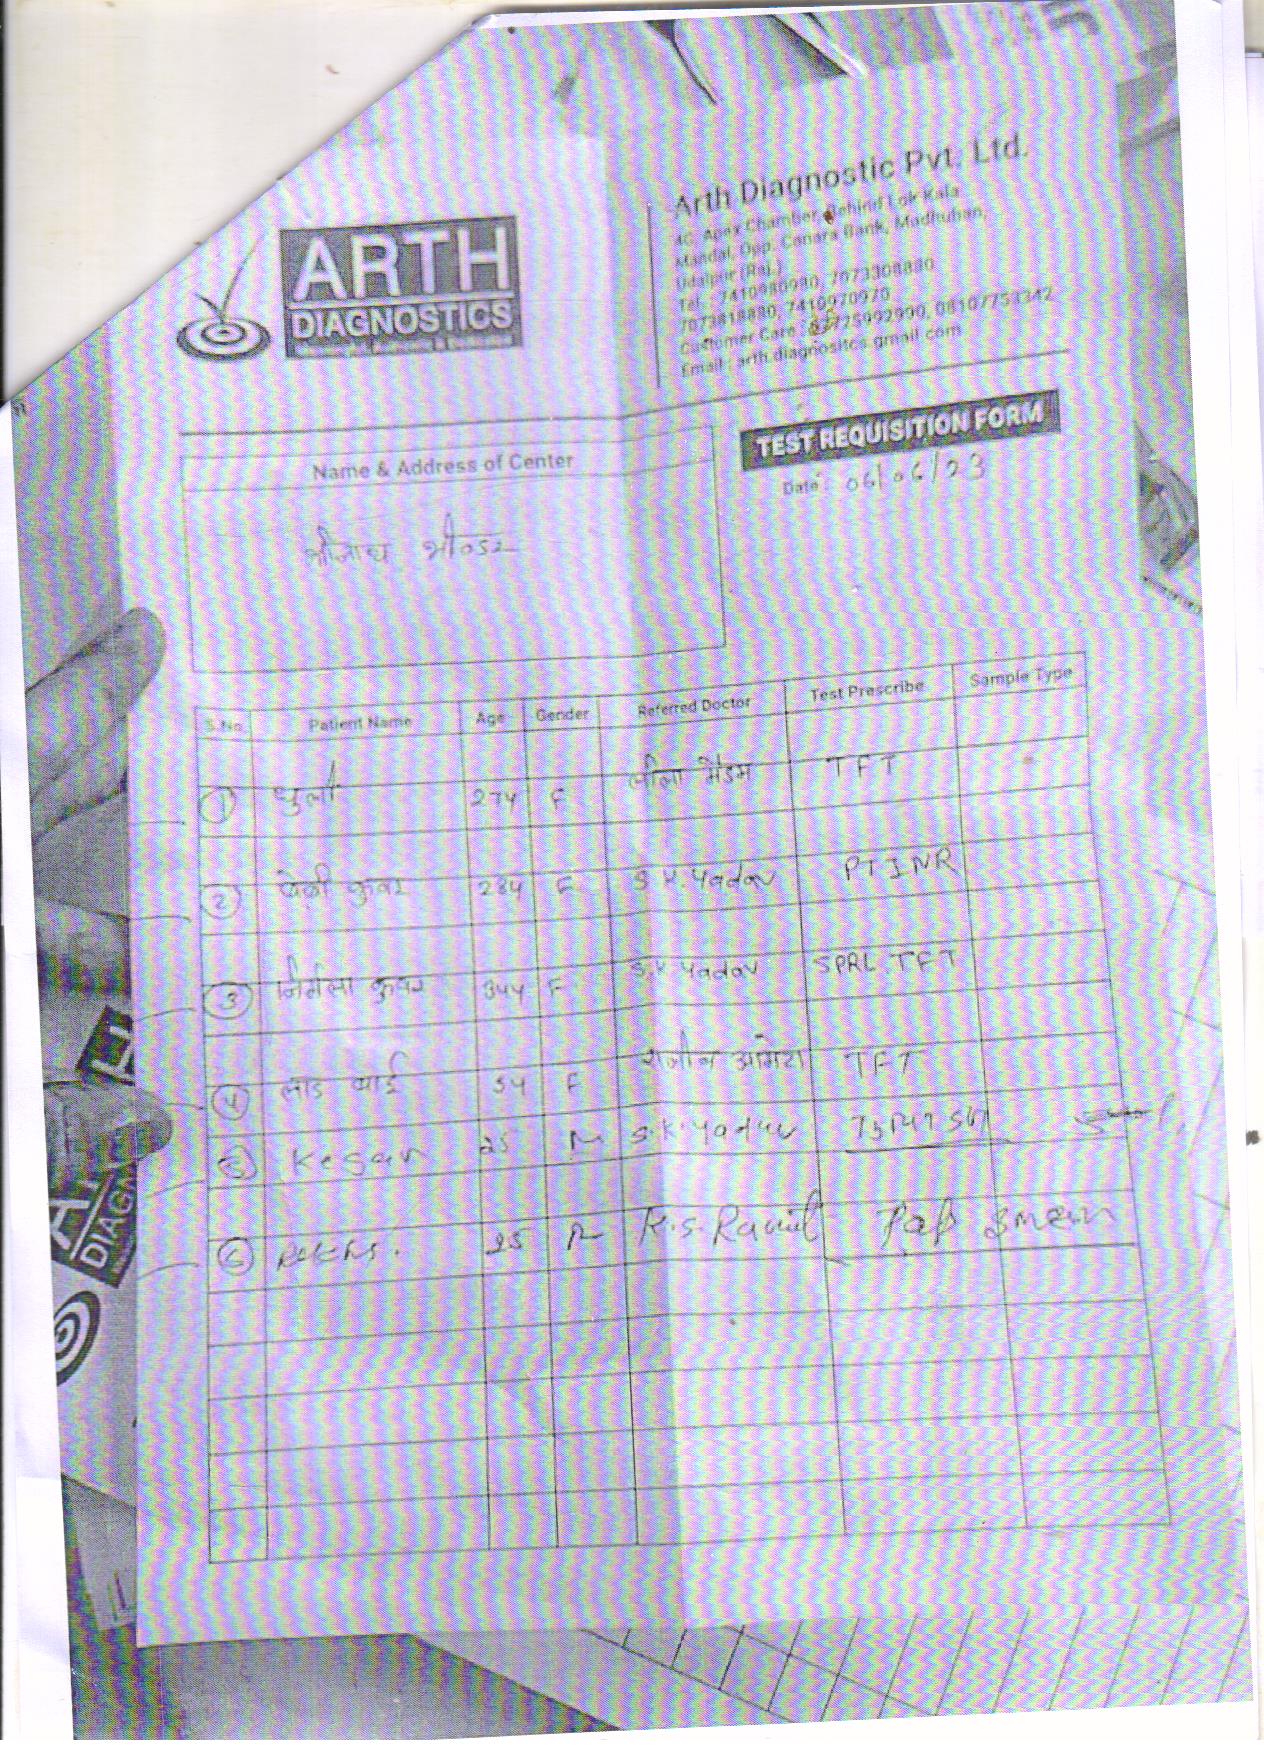 ARTH
DIAGNOSTICS
Arth Diagnostic Pvt. Ltd.
4C, Apex Chamber, Behind Lok Kala
Mandal, Opp. Canara Bank, Madhuban,
Udaipur (Raj.)
Tel. : 7410980980, 7073308880
7073818880, 7410970970
Customer Care : 08107753342
Email : arth.diagnositcs gmail com
TEST REQUISITION FORM
Date : 06/06/23
Name & Address of Center
श्रीनाथ भीण्डर
S.No. Patient Name Age Gender Referred Doctor Test Prescribe Sample Type
1 धुली 27Y F लीला मैडम TFT
2 कुंवर 28Y F S.K.Yadav PTINR
3 निर्मला कुंवर 34Y F S.K Yadav SPRL, TFT
4 लाड बाई F TFT
5 Kesar 25 M S.K.Yadav
6 25 M K.S. Pap Smear